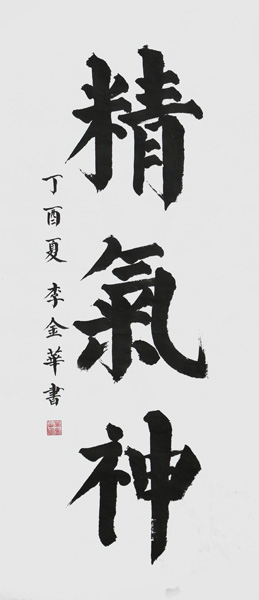 精氣神
丁酉夏 李金華書